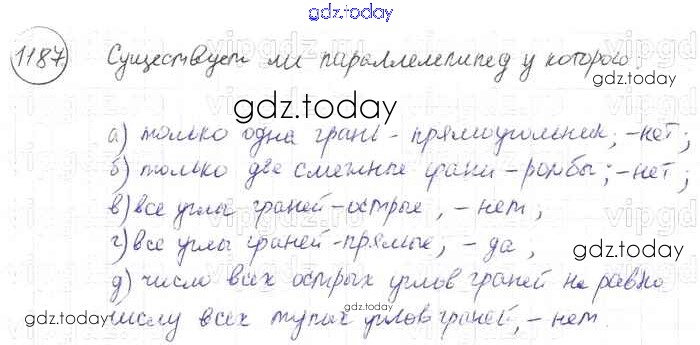 gdz.today
1187 Существует ли параллелепипед у которого:
gdz.today
а) только одна грань - прямоугольник; - нет;
б) только две смежные грани - ромбы; - нет;
в) все углы граней - острые, - нет;
г) все углы граней - прямые; - да,
gdz.today
д) число всех острых углов граней не равно
gdz.today
gdz.today
числу всех тупых углов граней, - нет.